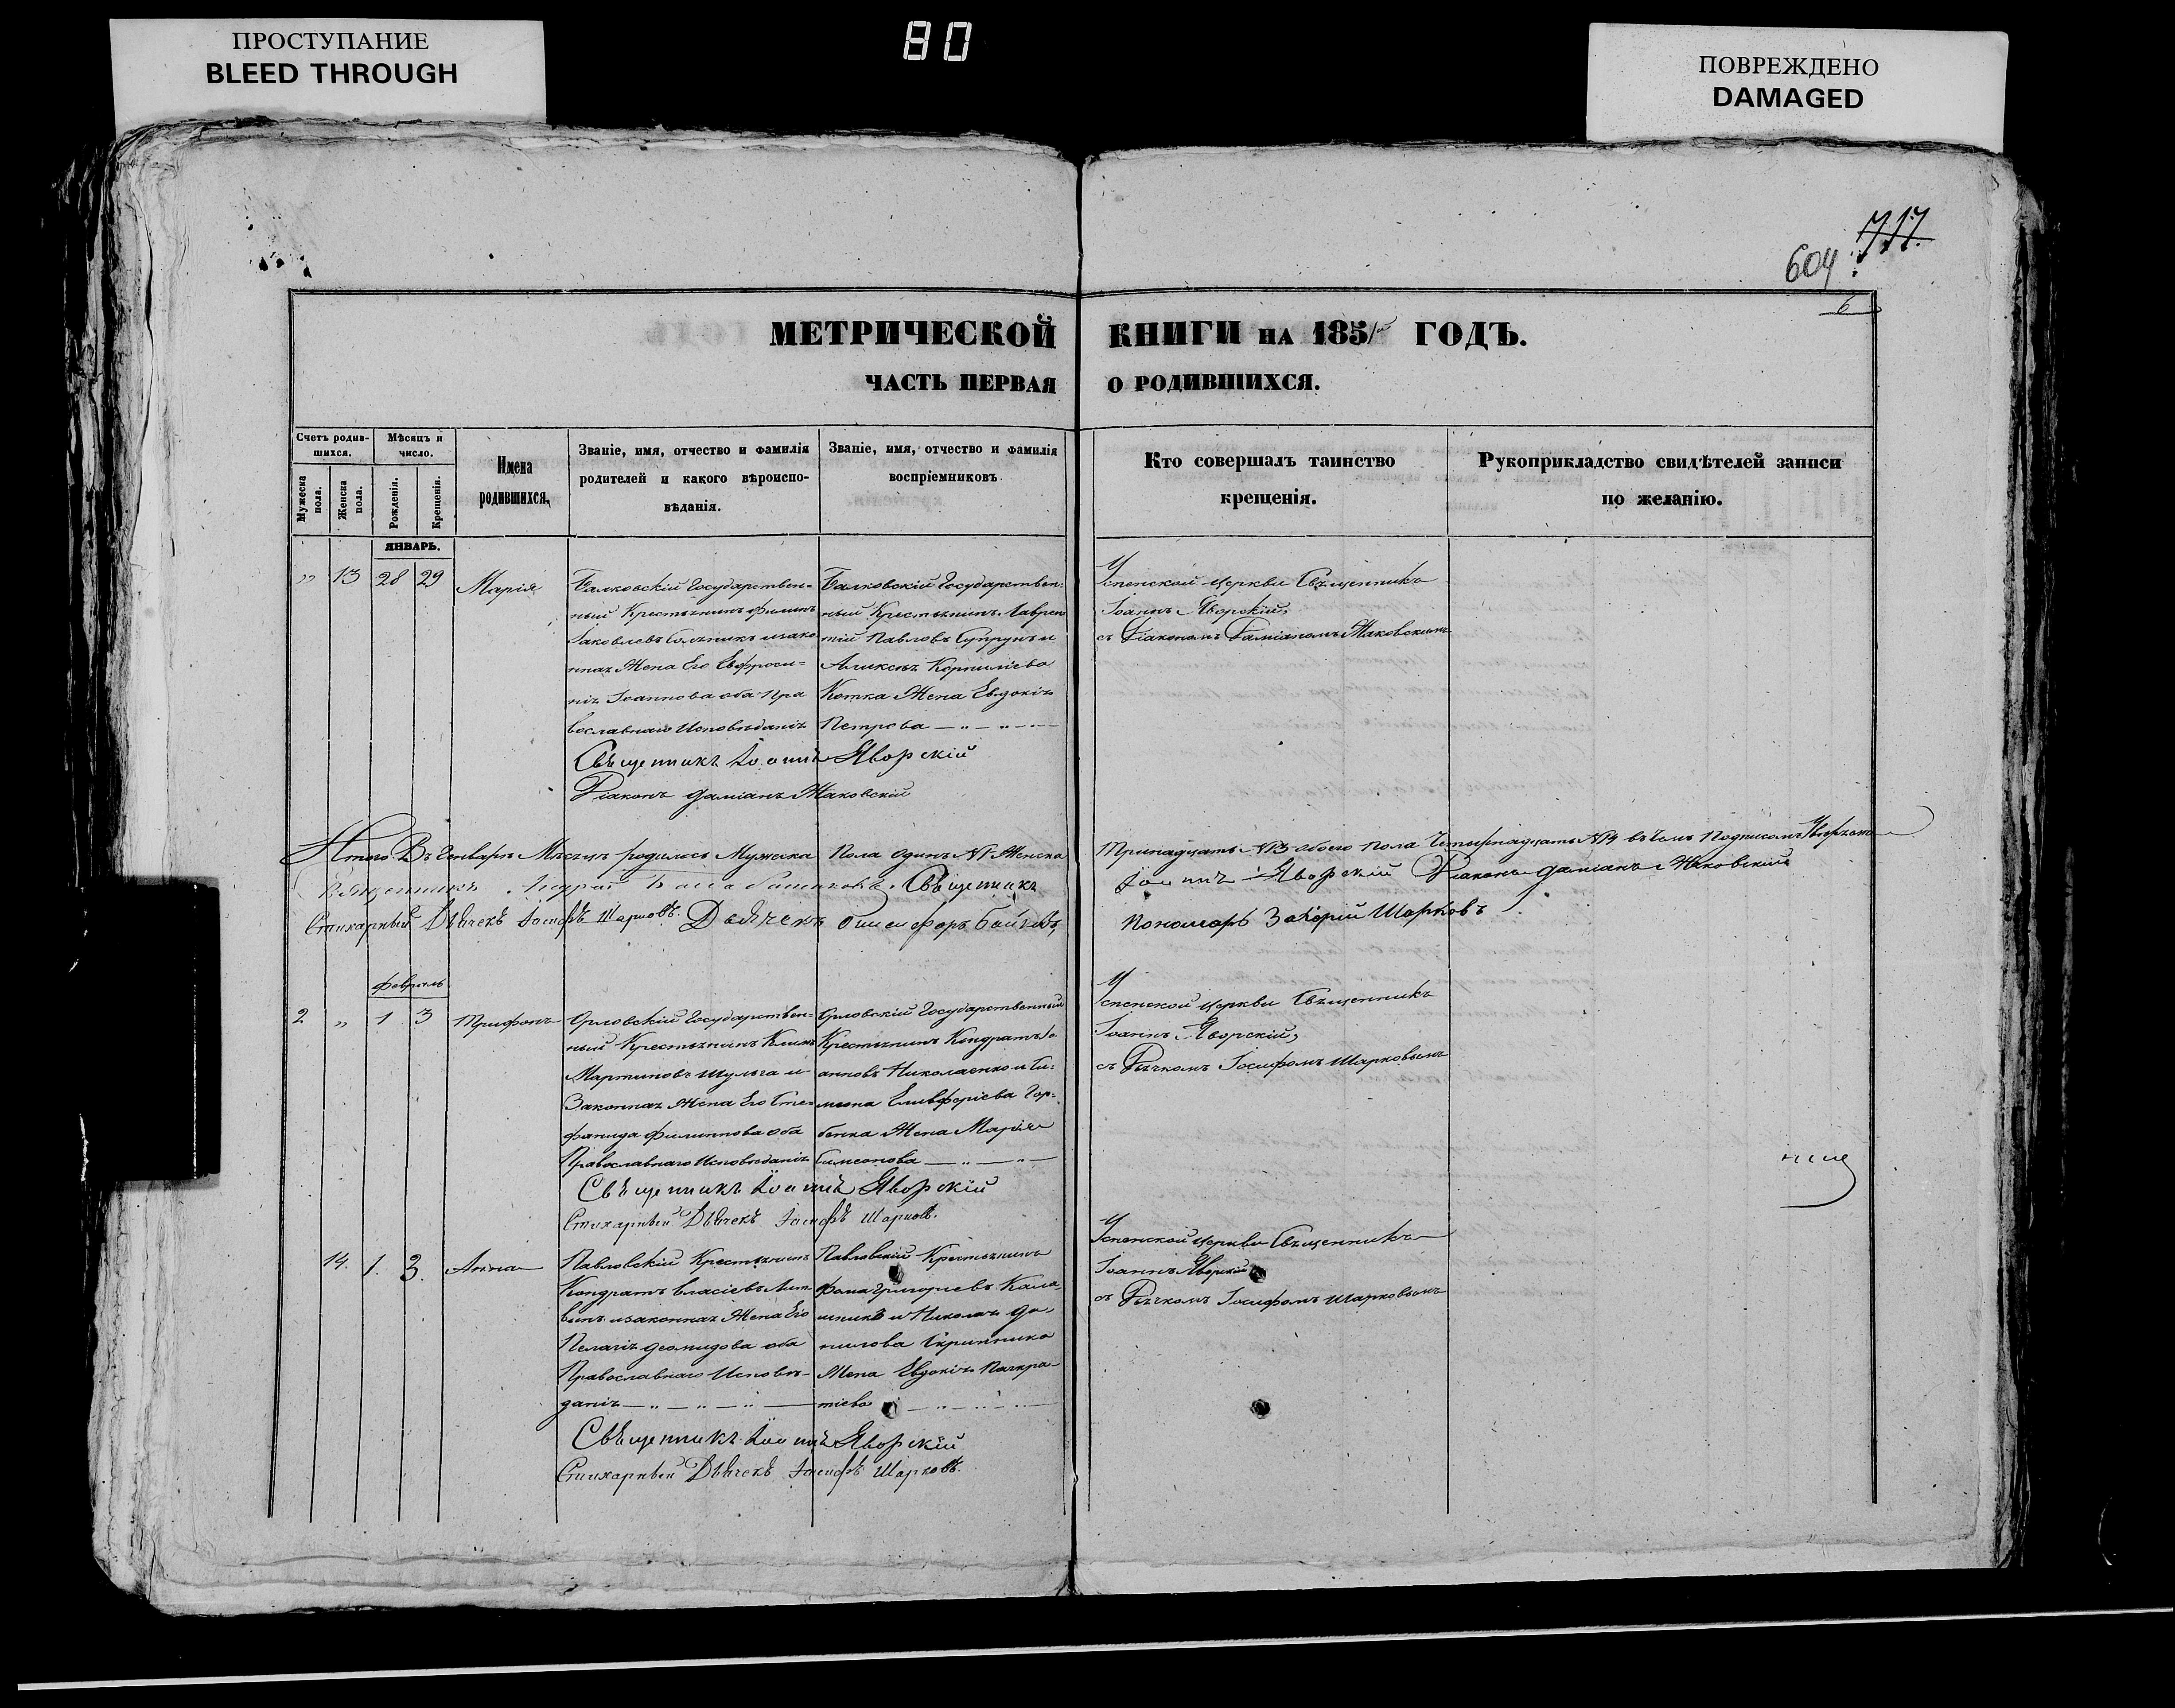 ПРОСТУПАНИЕ
BLEED THROUGH
80
ПОВРЕЖДЕНО
DAMAGED
717
604
6
МЕТРИЧЕСКОЙ КНИГИ НА 1851 ГОДЪ.
ЧАСТЬ ПЕРВАЯ О РОДИВШИХСЯ.
Счетъ родив-
шихся.
Мужеска
пола.
Женска
пола.
Мѣсяцъ и
число.
Рожденія.
Крещенія.
Имена
родившихся.
Званіе, имя, отчество и фамилія
родителей и какого вѣроиспо-
вѣданія.
Званіе, имя, отчество и фамилія
воспріемниковъ
Кто совершалъ таинство
крещенія.
Рукоприкладство свидѣтелей записи
по желанію.
ЯНВАРЬ.
" 13 28 29 Марія
Балковскій Государствен=
ный Крестьянинъ Филипъ
Іаковлевъ изако
нная Жена Его Евфроси=
нія Іоаннова оба Пра
вославнаго Исповѣданія
Балковскій Государствен:
ный Крестьянинъ Лаврен
тій Павловъ Супрунъ и
Алексѣя Корниліева
Котка Жена Евдокія
Петрова
Успенской церкви Священникъ
Іоаннъ Яворскій
съ Діакономъ Даміаномъ Маковскимъ
Священникъ Іоаннъ Яворскій
Діаконъ Даміанъ Маковскій
Итого Въ Генварѣ Мѣсяцѣ родилось Мужеска Пола Одинъ №1 Женска Тринадцать №13 обоего пола Четырнадцать №14 въ чемъ Подписомъ
Священникъ Андрей Священникъ Іоаннъ Яворскій Діаконъ Даміанъ Маковскій
Стихарный Дьячекъ Іосифъ Шарковъ. Дьячекъ Пономарь Захарій Шарковъ
Февраль
2 " 1 3 Трифонъ
Орловскій Государствен=
ный Крестьянинъ Климъ
Мартиновъ Шульга и
Законная Жена Его Сте=
фанида Филиппова оба
Православнаго Исповѣданія
Орловскій Государственный
Крестьянинъ Кондратъ Іо
анновъ Николаенко и Си=
меона Елевферіева Гор=
бенка Жена Марія
Симеонова
Успенской церкви Священникъ
Іоаннъ Яворскій
съ Дьячкомъ Іосифомъ Шарковымъ
Священникъ Іоаннъ Яворскій
Стихарный Дьячекъ Іосифъ Шарковъ.
14. 1. 3. Анна
Павловскій Крестьянинъ
Кондратъ Власіевъ Лит
винъ изаконная Жена Его
Пелагія Деомидова оба
Православнаго Исповѣ-
данія
Павловскій Крестьянинъ
Фома Григорьевъ Кала
шникъ и Николая Да
нилова Скрипника
Жена Евдокія Панкра-
тіева
Успенской церкви Священникъ
Іоаннъ Яворскій
съ Дьячкомъ Іосифомъ Шарковымъ
Священникъ Іоаннъ Яворскій
Стихарный Дьячекъ Іосифъ Шарковъ.